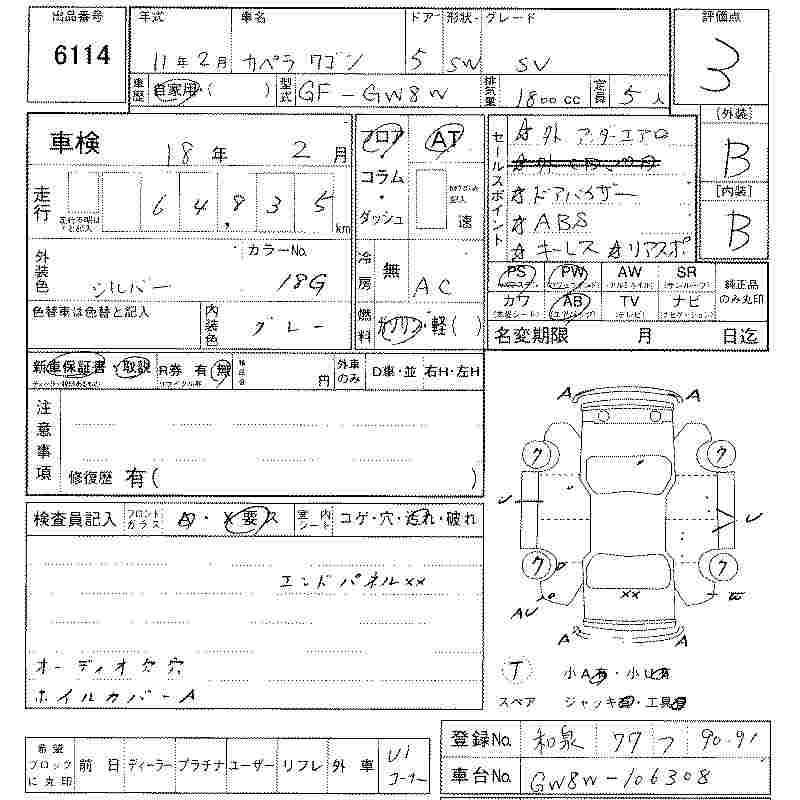 出品番号 年式 車名 ドア・形状・グレード 評価点
6114 11年2月 カペラ ワゴン 5 SW SV 3
車歴 自家用・( ) 型式 GF-GW8W 排気量 1800 cc 定員 5人
[外装]
B
[内装]
B
車検 18年 2月
走行 64,835 km
走行不明は*と記入
外装色 シルバー カラーNo. 18G
色替車は色替と記入 内装色 グレー
フロア AT
コラム・ダッシュ 速
冷房 無 AC
燃料 ガソリン・軽( )
セールスポイント
☆外 アンダーエアロ
☆ドアバイザー
☆ABS
☆キーレス ☆リアスポ
PS PW AW SR 純正品のみ丸印
(パワーステ) (パワーウインド) (アルミホイル) (サンルーフ)
カワ AB TV ナビ
(本革シート) (エアバッグ) (テレビ) (ナビゲーション)
名変期限 月 日迄
新車保証書・取説 R券 有・無 円 外車のみ D車・並 右H・左H
注意事項
修復歴 有( )
検査員記入 フロントガラス A・X要ス 室内シート コゲ・穴・汚れ・破れ
エンドパネル××
オーディオ欠穴
ホイルカバーA
A A
ワ ワ
ワ ワ
××
AU
A A
T 小A有・小U有
スペア ジャッキ有・工具有
希望ブロックに丸印 前日 ディーラー プラチナ ユーザー リフレ 外車 U1コーナー
登録No. 和泉 77 つ 90-91
車台No. GW8W-106308